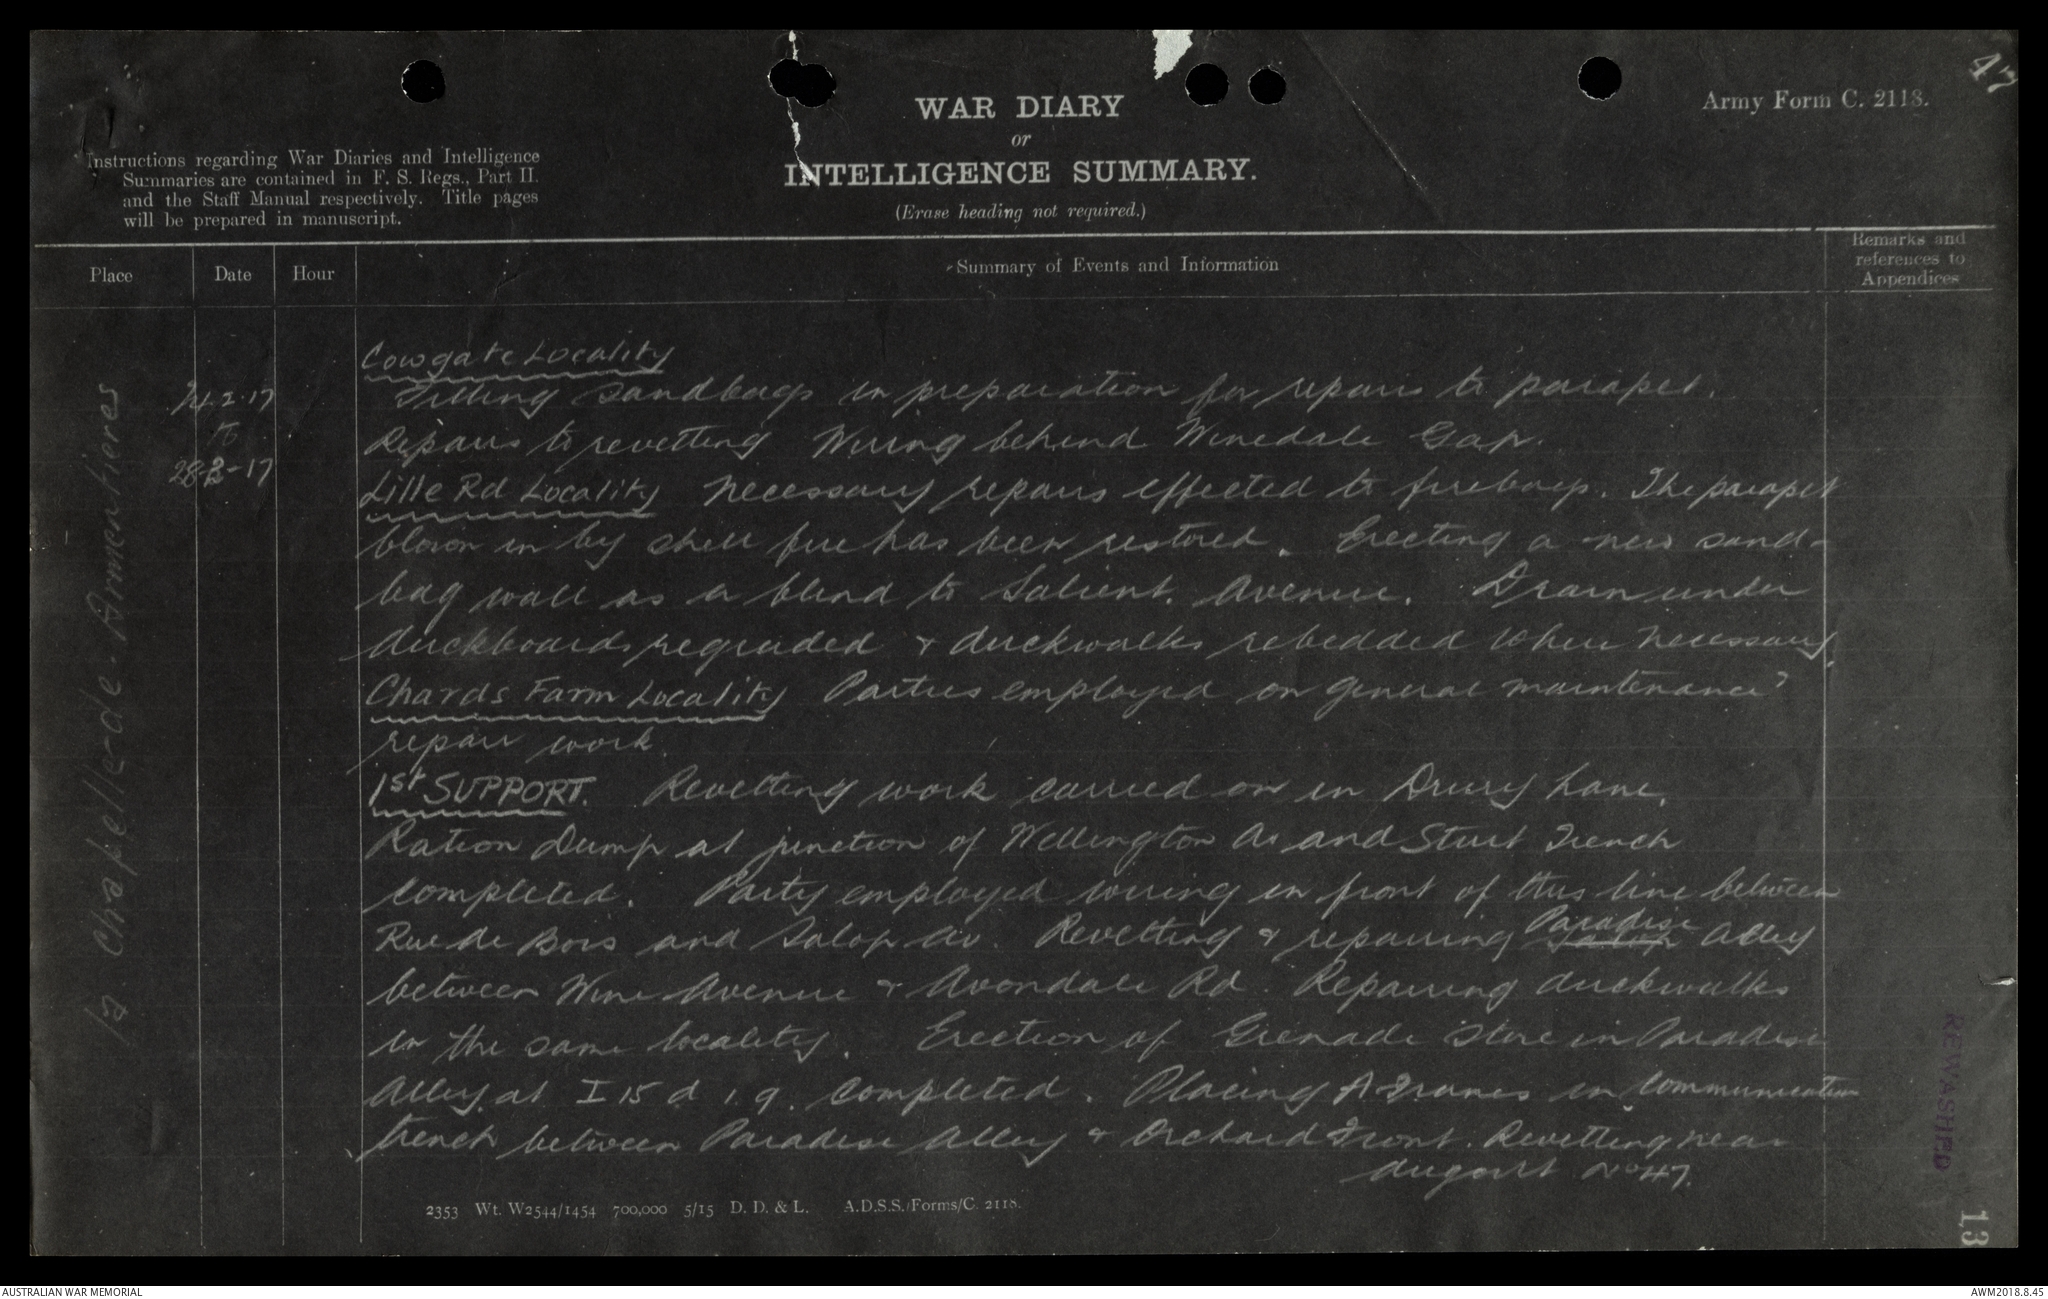 47
Army Form C. 2118.
WAR DIARY
or
INTELLIGENCE SUMMARY.
(Erase heading not required.)
Instructions regarding War Diaries and Intelligence
Summaries are contained in F. S. Regs., Part II.
and the Staff Manual respectively. Title pages
will be prepared in manuscript.
Place
Date
Hour
Summary of Events and Information
Remarks and
references to
Appendices
La Chapelle-de-Armentieres
24-2-17
to
28-2-17
Cowgate Locality
Filling sandbags in preparation for repairs to parapet.
Repairs to revetting Wiring behind Winedale Gap.
Lille Rd Locality Necessary repairs effected to firebays. The parapet
blown in by shell fire has been restored. Erecting a new sand-
bag wall as a blind to Salient Avenue. Drain under
duckboards regraded & duckwalks rebedded where necessary.
Chards Farm Locality Parties employed on general maintenance &
repair work.
1st SUPPORT. Revetting work carried on in Drury Lane.
Ration Dump at junction of Wellington Av and Sturt Trench
completed. Party employed wiring in front of this line between
Rue de Bois and Salop Av. Revetting & repairing Paradise Alley
between Wine Avenue & Avondale Rd. Repairing duckwalks
in the same locality. Erection of Grenade store in Paradise
Alley at I 15 d 1.9. completed. Placing A Frames in communication
trench between Paradise Alley & Orchard Front. Revetting near
dugout No 47.
2353 Wt. W2544/1454 700,000 5/15 D. D. & L. A.D.S.S./Forms/C. 2118.
REWASHED
13
AUSTRALIAN WAR MEMORIAL
AWM2018.8.45